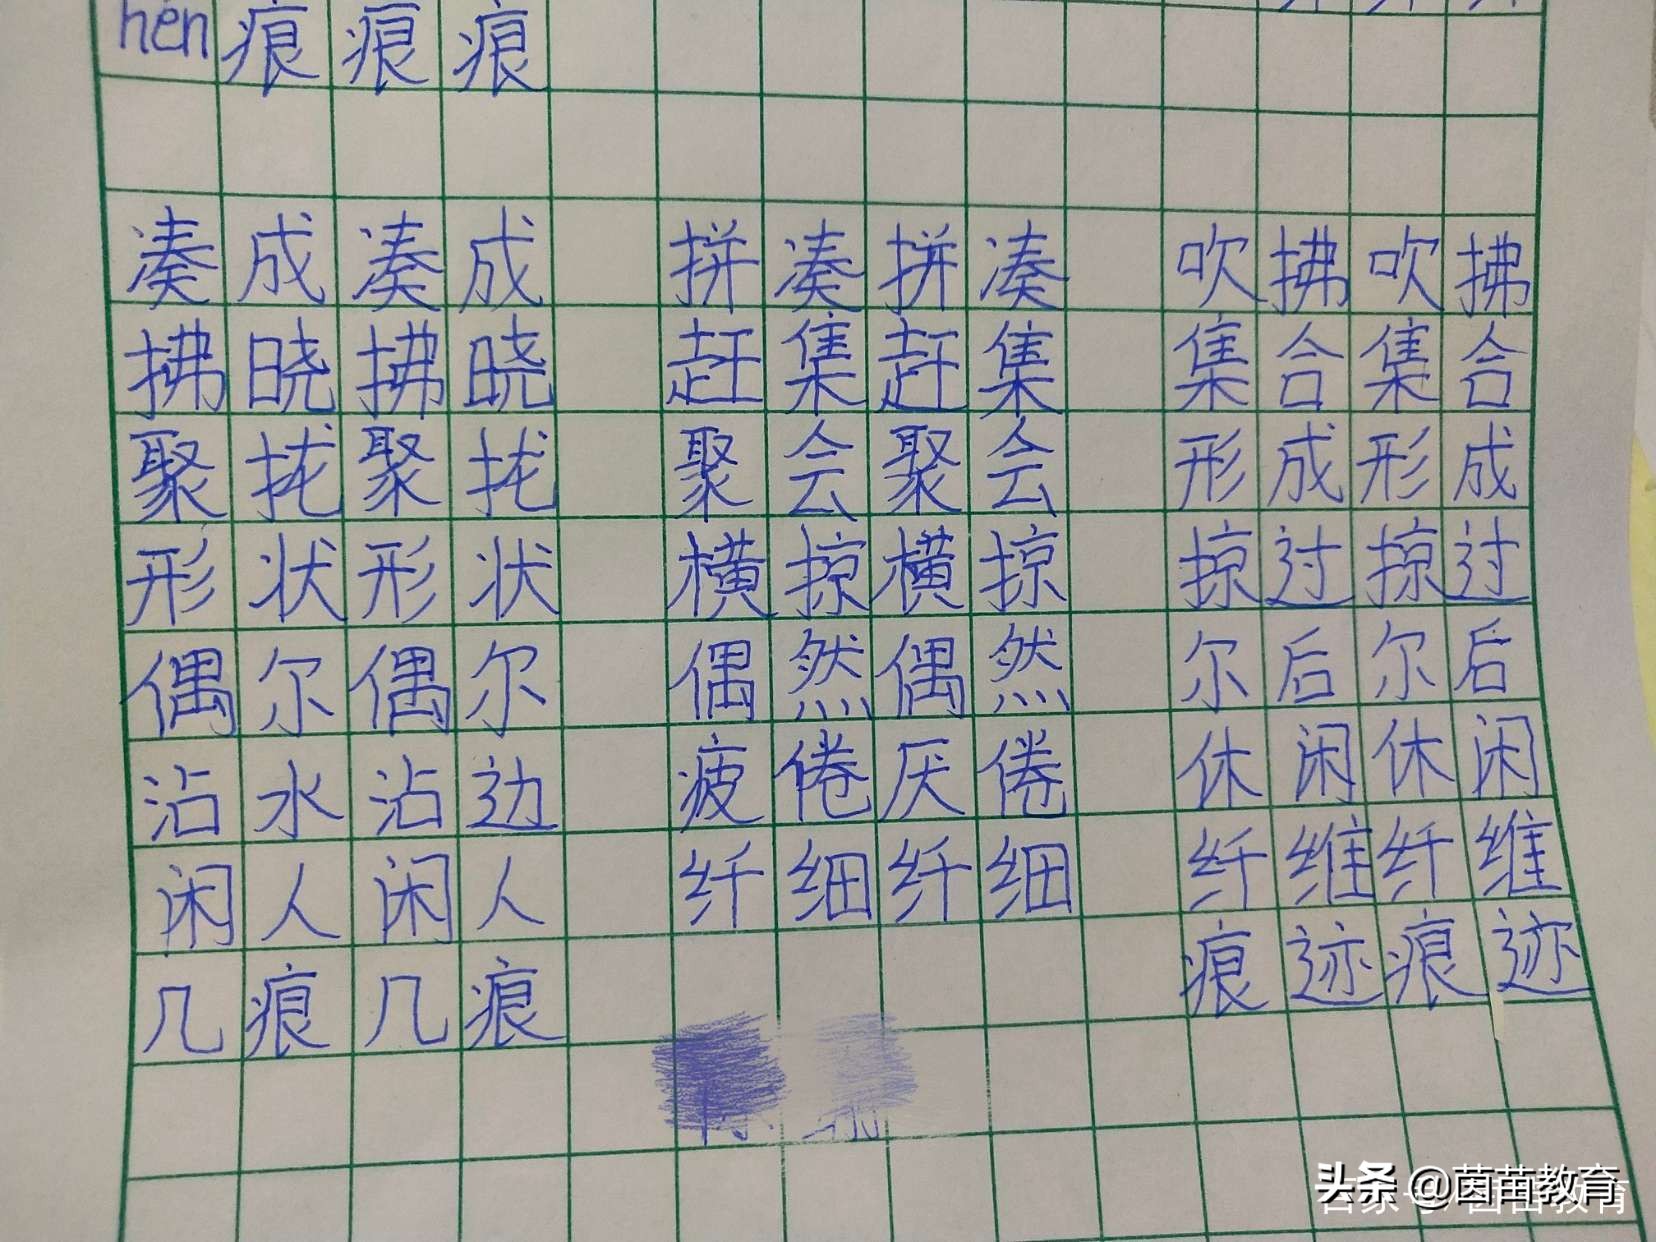 hén 痕 痕 痕
凑成凑成 拼凑拼凑 吹拂吹拂
拂晓拂晓 赶集赶集 集合集合
聚拢聚拢 聚会聚会 形成形成
形状形状 横掠横掠 掠过掠过
偶尔偶尔 偶然偶然 尔后尔后
沾水沾边 疲倦厌倦 休闲休闲
闲人闲人 纤细纤细 纤维纤维
几痕几痕 痕迹痕迹
头条 @茵苗教育